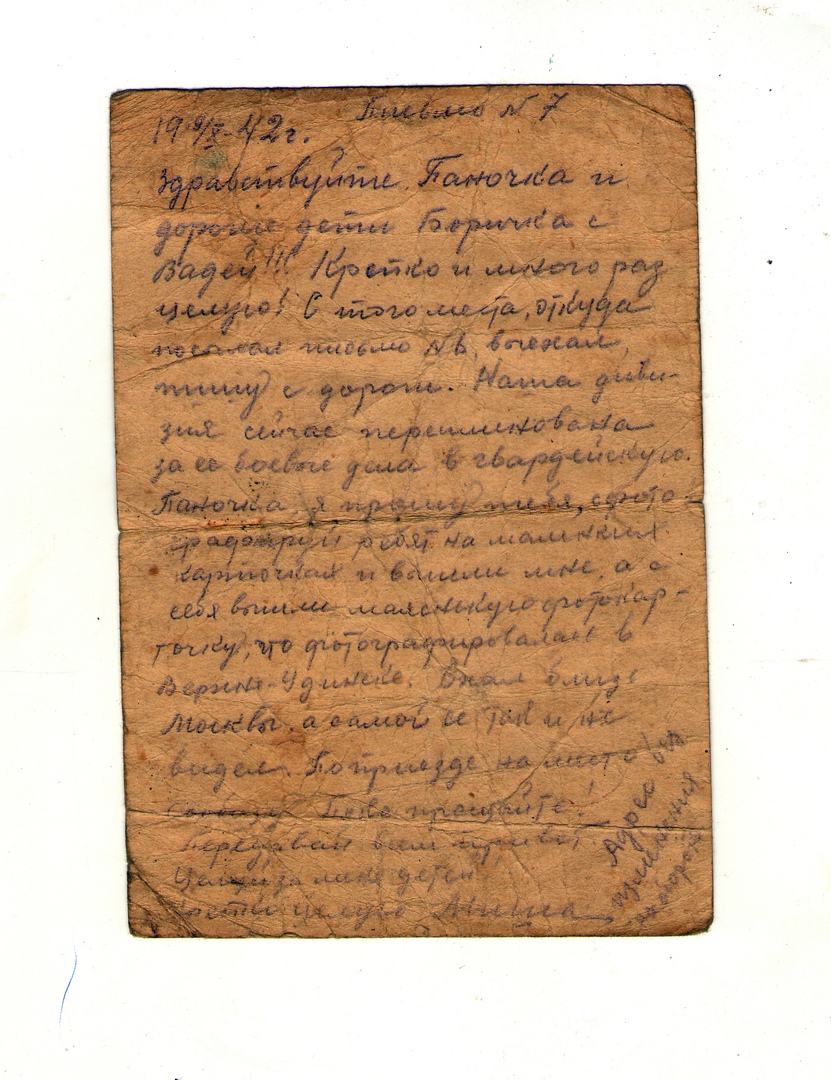 Письмо N 7
19 9/X-42г.
Здравствуйте Паночка и
дорогие дети Боричка с
Вадей!!! Крепко и много раз
целую! С того места, откуда
послал письмо N6, выехал,
пишу с дороги. Наша диви-
зия сейчас переименована
за ее боевые дела в гвардейскую.
Паночка, я прошу тебя, сфото-
графируй ребят на маленьких
карточках и вышли мне, а с
себя вышли маленькую фотокар-
точку, что фотографировалась в
Верхне-Удинске. Ехал близко
Москвы, а самой ее так и не
видел. По приезде на место
сообщу Пока прощайте!
Передавай всем привет.
Целуй за меня детей
Крепко целую Миша
Адрес
изменения
на обороте